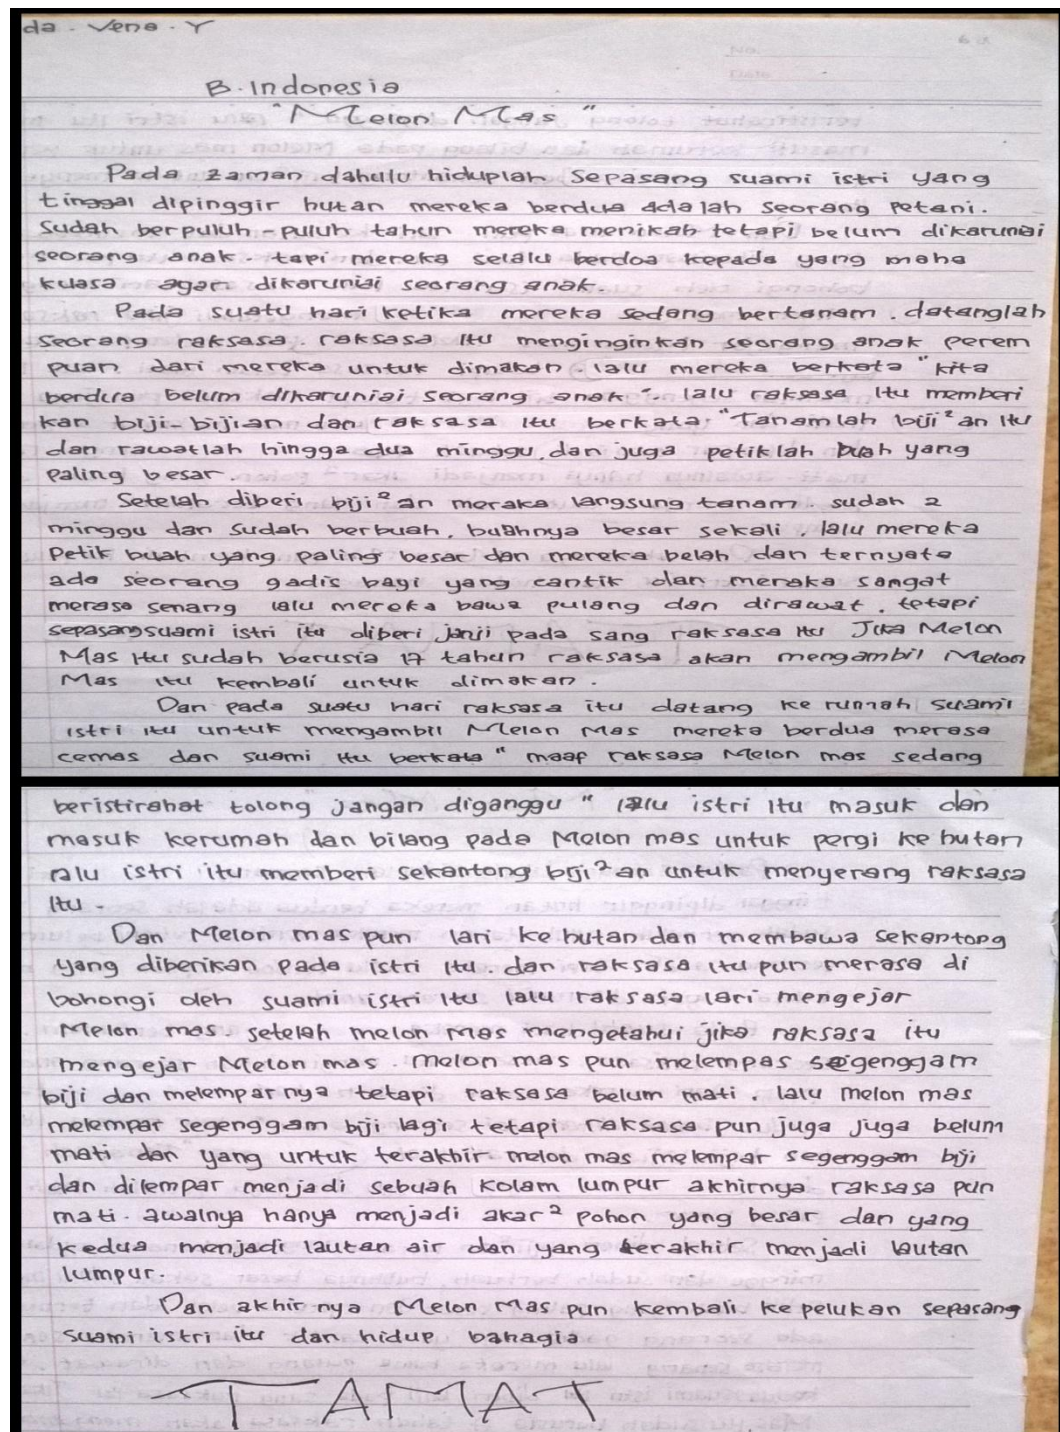 da. Vena. Y
B. Indonesia
"Melon Mas"
Pada zaman dahulu hiduplah Sepasang suami istri yang
tinggal dipinggir hutan mereka berdua adalah seorang petani.
Sudah berpuluh-puluh tahun mereka menikah tetapi belum dikaruniai
seorang anak. tapi mereka selalu berdoa kepada yang maha
kuasa agar dikaruniai seorang anak.
Pada suatu hari ketika mereka sedang bertanam. datanglah
seorang raksasa. raksasa itu menginginkan seorang anak perem
puan dari mereka untuk dimakan. lalu mereka berkata "kita
berdua belum dikaruniai seorang anak". lalu raksasa itu memberi
kan biji-bijian dan raksasa itu berkata "Tanamlah biji²an itu
dan rawatlah hingga dua minggu, dan juga petiklah buah yang
paling besar.
Setelah diberi biji²an meraka langsung tanam. sudah 2
minggu dan sudah berbuah, buahnya besar sekali, lalu mereka
Petik buah yang paling besar dan mereka belah dan ternyata
ada seorang gadis bayi yang cantik dan meraka sangat
merasa senang lalu mereka bawa pulang dan dirawat. tetapi
sepasang suami istri itu diberi janji pada sang raksasa itu Jika Melon
Mas itu sudah berusia 17 tahun raksasa akan mengambil Melon
Mas itu kembali untuk dimakan.
Dan pada suatu hari raksasa itu datang ke rumah suami
istri itu untuk mengambil Melon Mas mereka berdua merasa
cemas dan suami itu berkata "maaf raksasa Melon mas sedang
beristirahat tolong jangan diganggu" lalu istri itu masuk dan
masuk kerumah dan bilang pada Melon mas untuk pergi ke hutan
lalu istri itu memberi sekantong biji²an untuk menyerang raksasa
itu.
Dan Melon mas pun lari ke hutan dan membawa sekantong
yang diberikan pada istri itu. dan raksasa itu pun merasa di
bohongi oleh suami istri itu lalu raksasa lari mengejar
Melon mas. setelah melon Mas mengetahui jika raksasa itu
mengejar Melon mas. melon mas pun melempas segenggam
biji dan melemparnya tetapi raksasa belum mati. lalu melon mas
melempar segenggam biji lagi tetapi raksasa pun juga juga belum
mati dan yang untuk terakhir melon mas melempar segenggam biji
dan dilempar menjadi sebuah kolam lumpur akhirnya raksasa pun
mati. awalnya hanya menjadi akar² pohon yang besar dan yang
kedua menjadi lautan air dan yang terakhir menjadi lautan
lumpur.
Dan akhirnya Melon Mas pun kembali ke pelukan sepasang
suami istri itu dan hidup bahagia
TAMAT